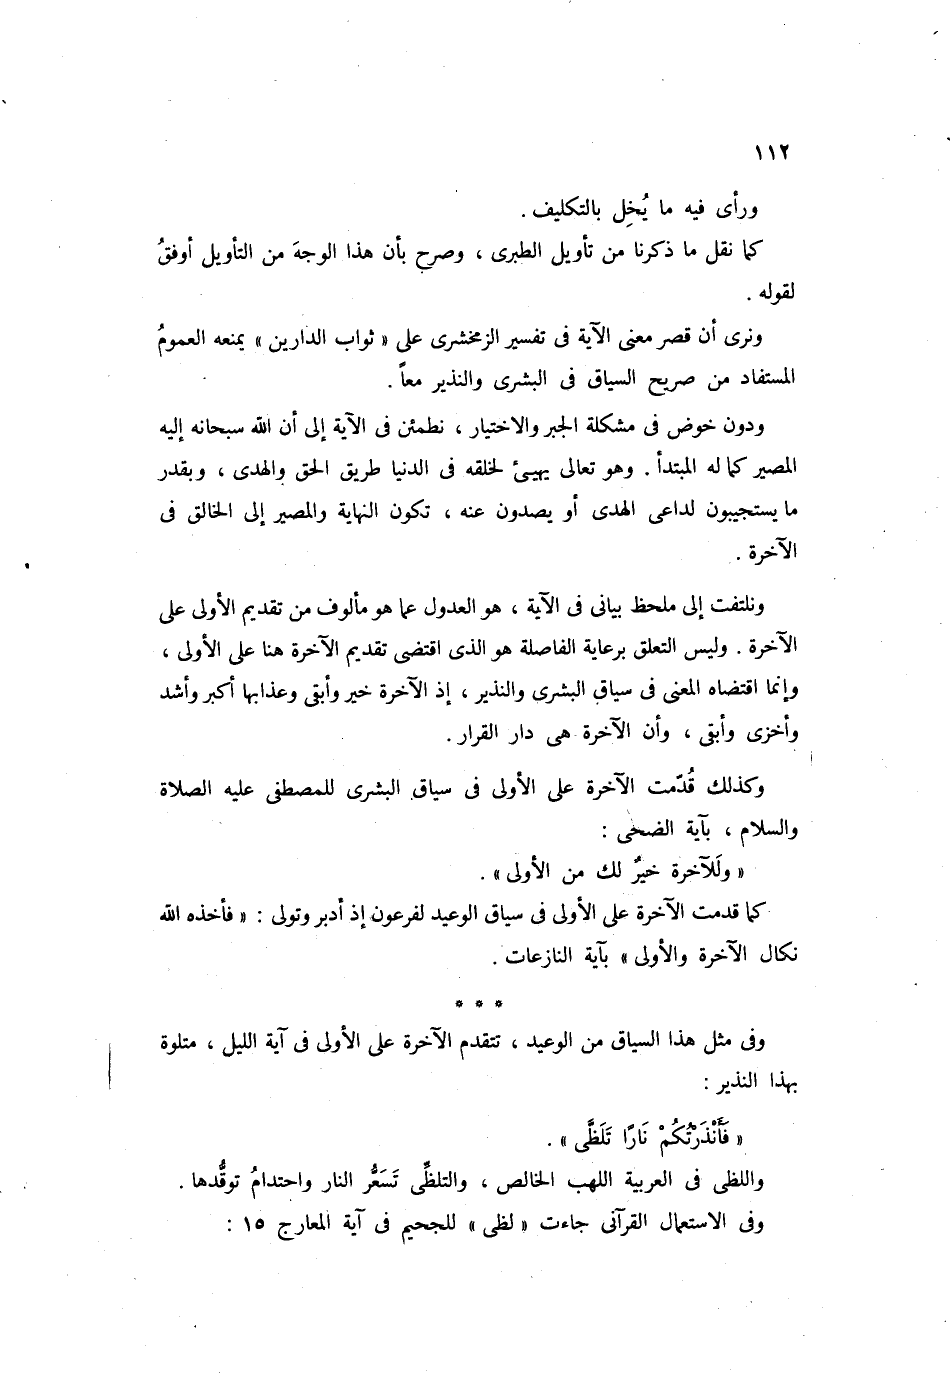 ١١٢
ورأى فيه ما يُخِل بالتكليف .
كما نقل ما ذكرنا من تأويل الطبرى ، وصرح بأن هذا الوجهَ من التأويل أوفقُ
لقوله .
ونرى أن قصر معنى الآية فى تفسير الزمخشرى على « ثواب الدارين » يمنعه العمومُ
المستفاد من صريح السياق فى البشرى والنذير معاً .
ودون خوض فى مشكلة الجبر والاختيار ، نطمئن فى الآية إلى أن الله سبحانه إليه
المصير كما له المبتدأ . وهو تعالى يهيئ لخلقه فى الدنيا طريق الحق والهدى ، وبقدر
ما يستجيبون لداعى الهدى أو يصدون عنه ، تكون النهاية والمصير إلى الخالق فى
الآخرة .
ونلتفت إلى ملحظ بيانى فى الآية ، هو العدول عما هو مألوف من تقديم الأولى على
الآخرة . وليس التعلق برعاية الفاصلة هو الذى اقتضى تقديم الآخرة هنا على الأولى ،
وإنما اقتضاه المعنى فى سياق البشرى والنذير ، إذ الآخرة خير وأبقى وعذابها أكبر وأشد
وأخزى وأبقى ، وأن الآخرة هى دار القرار .
وكذلك قُدّمت الآخرة على الأولى فى سياق البشرى للمصطفى عليه الصلاة
والسلام ، بآية الضحى :
« ولَلآخرة خيرٌ لك من الأولى » .
كما قدمت الآخرة على الأولى فى سياق الوعيد لفرعون إذ أدبر وتولى : « فأخذه الله
نكال الآخرة والأولى » بآية النازعات .
* * *
وفى مثل هذا السياق من الوعيد ، تتقدم الآخرة على الأولى فى آية الليل ، متلوة
بهذا النذير :
« فَأَنْذَرْتُكُمْ نَارًا تَلَظَّى » .
واللظى فى العربية اللهب الخالص ، والتلظِّى تَسَعُّر النار واحتدامُ توقُّدها .
وفى الاستعمال القرآنى جاءت « لظى » للجحيم فى آية المعارج ١٥ :